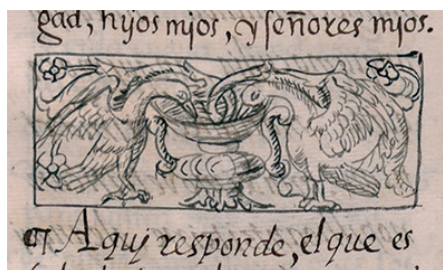 gad, hijos mjos, y señores mjos.
¶ Aquj responde, el que es